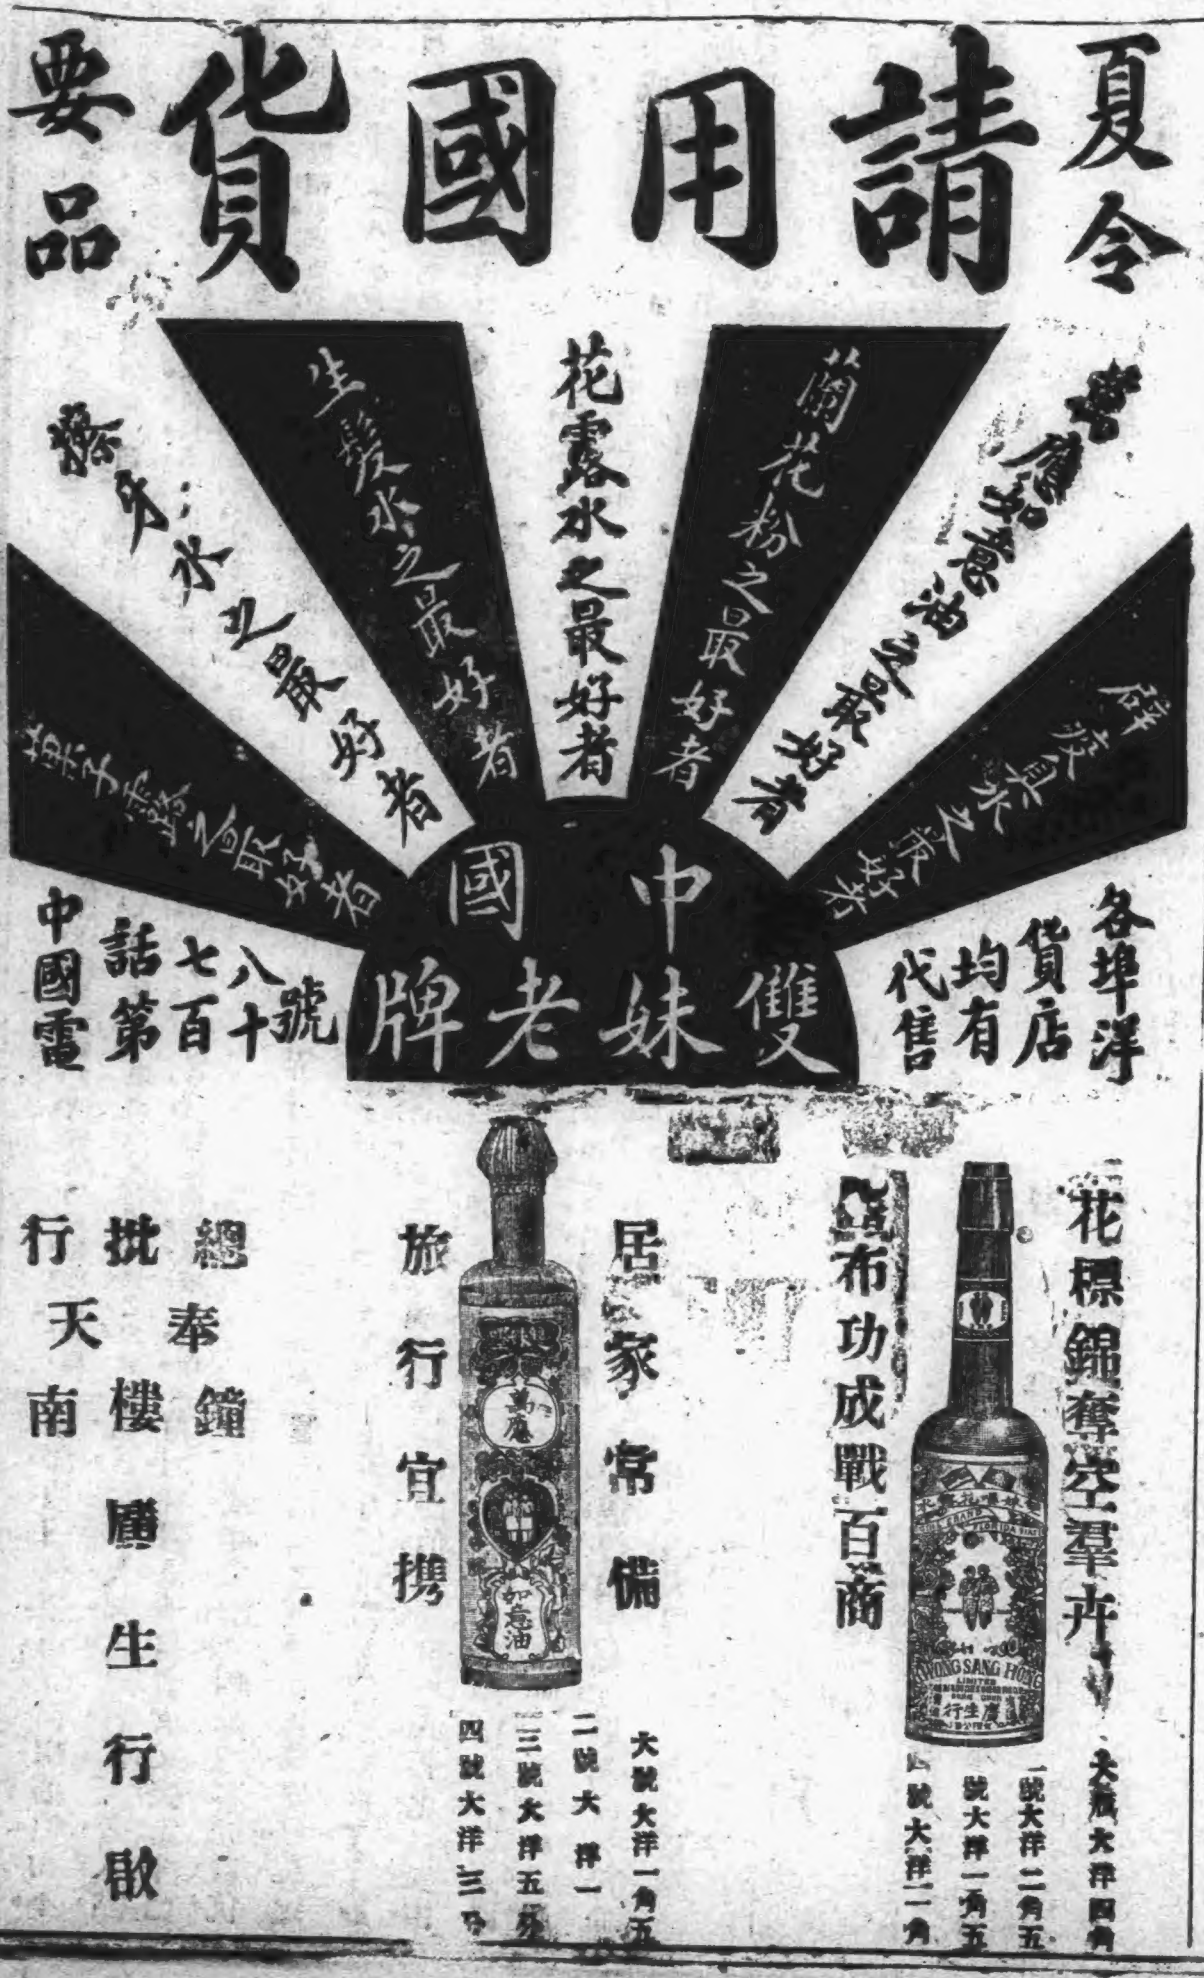 夏令
請用國貨
要品
辟疫臭水之最好者
萬應如意油之最好者
蘭花粉之最好者
花露水之最好者
生髮水之最好者
擦牙水之最好者
菓子露之最好者
中國
雙妹老牌
各埠洋
貨店
均有
代售
中國電
話第
七百
八十
號
花標錦奪空羣卉
布功成戰百商
KWONG SANG HONG
LIMITED
廣生行
大瓶大洋四角
號大洋二角五
號大洋一角五
號大洋一角
居家常備
旅行宜携
萬應
如意油
大號大洋一角五
二號大洋一
三號大洋五分
四號大洋三分
總奉鐘
批樓廣生行啟
行天南